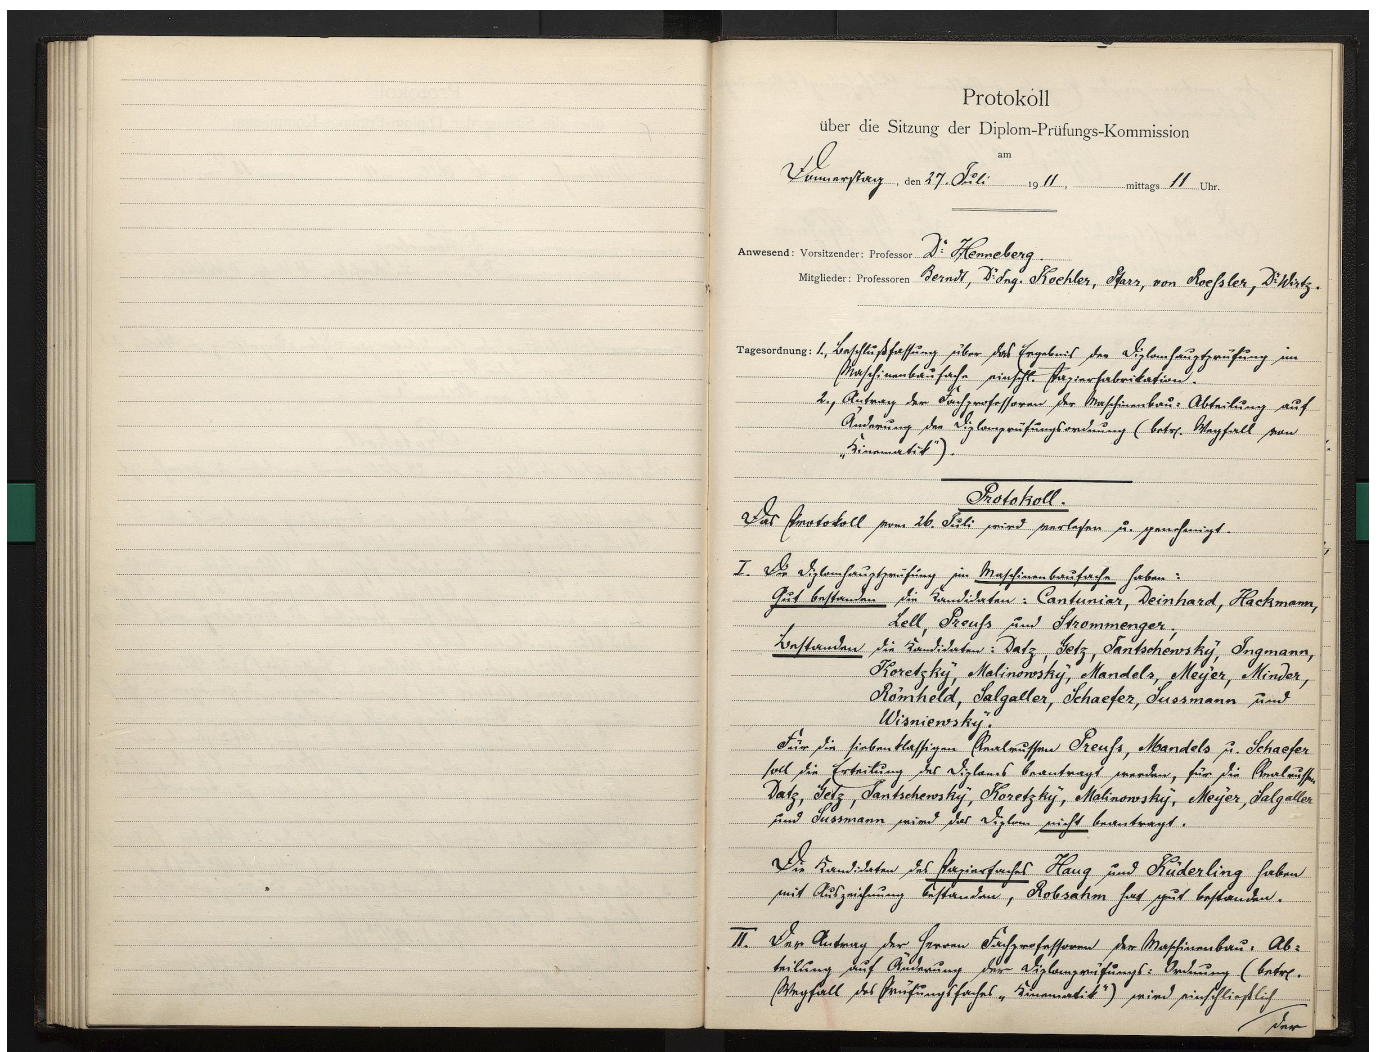 Protokoll
über die Sitzung der Diplom-Prüfungs-Kommission
am
Donnerstag, den 27. Juli 1911, mittags 11 Uhr.
Anwesend: Vorsitzender: Professor Dr. Henneberg.
Mitglieder: Professoren Berndt, Dr. Ing. Koehler, Pfarr, von Roeßler, Dr. Wirtz.
Tagesordnung: 1., Beschlußfassung über das Ergebnis der Diplomhauptprüfung im
Maschinenbaufache einschl. Papierfabrikation.
2., Antrag der Fachprofessoren der Maschinenbau: Abteilung auf
Änderung der Diplomprüfungsordnung (betr. Wegfall von
„Kinematik").
Protokoll.
Das Protokoll vom 26. Juli wird verlesen u. genehmigt.
I. Die Diplomhauptprüfung im Maschinenbaufache haben:
Gut bestanden die Kandidaten: Cantuniar, Deinhard, Hackmann,
Lell, Preuß und Strommenger,
Bestanden die Kandidaten: Datz, Getz, Jantschewsky, Ingmann,
Koretzky, Malinowsky, Mandels, Meyer, Minder,
Römheld, Salgaller, Schaefer, Sussmann und
Wisniewsky.
Für die siebenklassigen Realrussen Preuß, Mandels u. Schaefer
soll die Erteilung des Diploms beantragt werden, für die Realrussen
Datz, Getz, Jantschewsky, Koretzky, Malinowsky, Meyer, Salgaller
und Sussmann wird das Diplom nicht beantragt.
Die Kandidaten des Papierfaches Haug und Küderling haben
mit Auszeichnung bestanden, Robsahm hat gut bestanden.
II. Der Antrag der Herren Fachprofessoren der Maschinenbau: Ab=
teilung auf Änderung der Diplomprüfungs: Ordnung (betr.
Wegfall des Prüfungsfaches „Kinematik") wird einschließlich
der